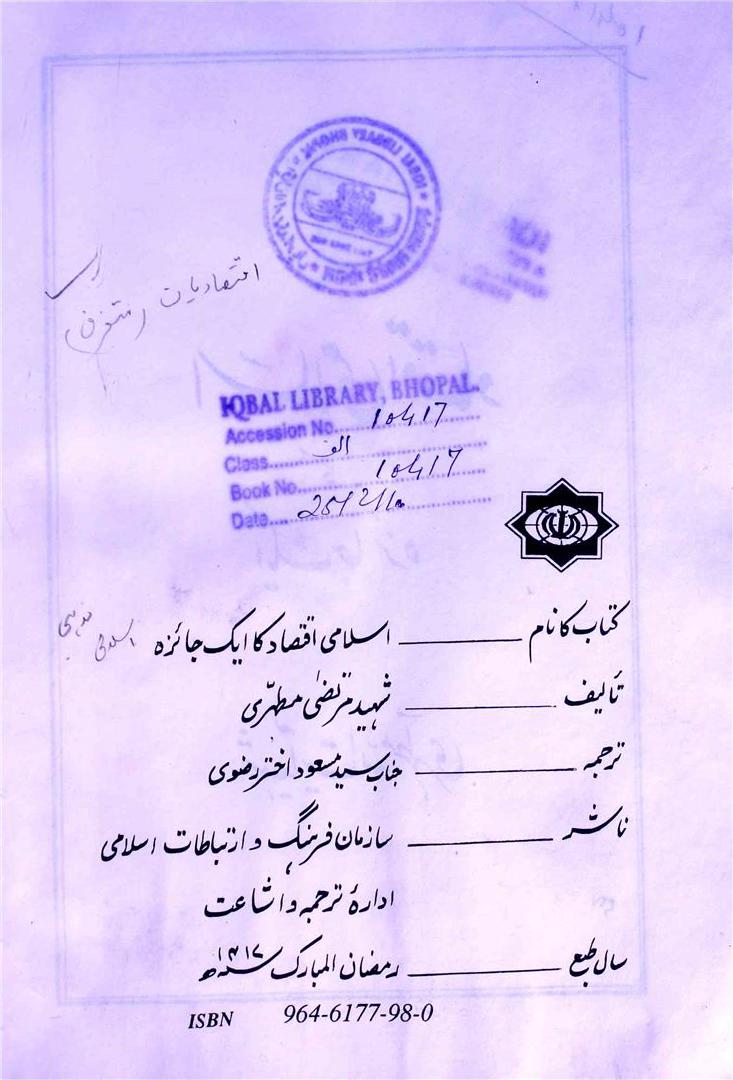 IQBAL LIBRARY BHOPAL
اقتصادیات
متفرق
IQBAL LIBRARY, BHOPAL.
Accession No. 10417
Class الف
Book No. 10417
Date
کتاب کا نام ـــــــ اسلامی اقتصاد کا ایک جائزہ
تألیف ـــــــ شہید مرتضیٰ مطہّری
ترجمہ ـــــــ جناب سید مسعود اختر رضوی
ناشر ـــــــ سازمان فرہنگ و ارتباطات اسلامی
ادارۂ ترجمہ و اشاعت
سال طبع ـــــــ رمضان المبارک ۱۴۱۷ھ
ISBN 964-6177-98-0